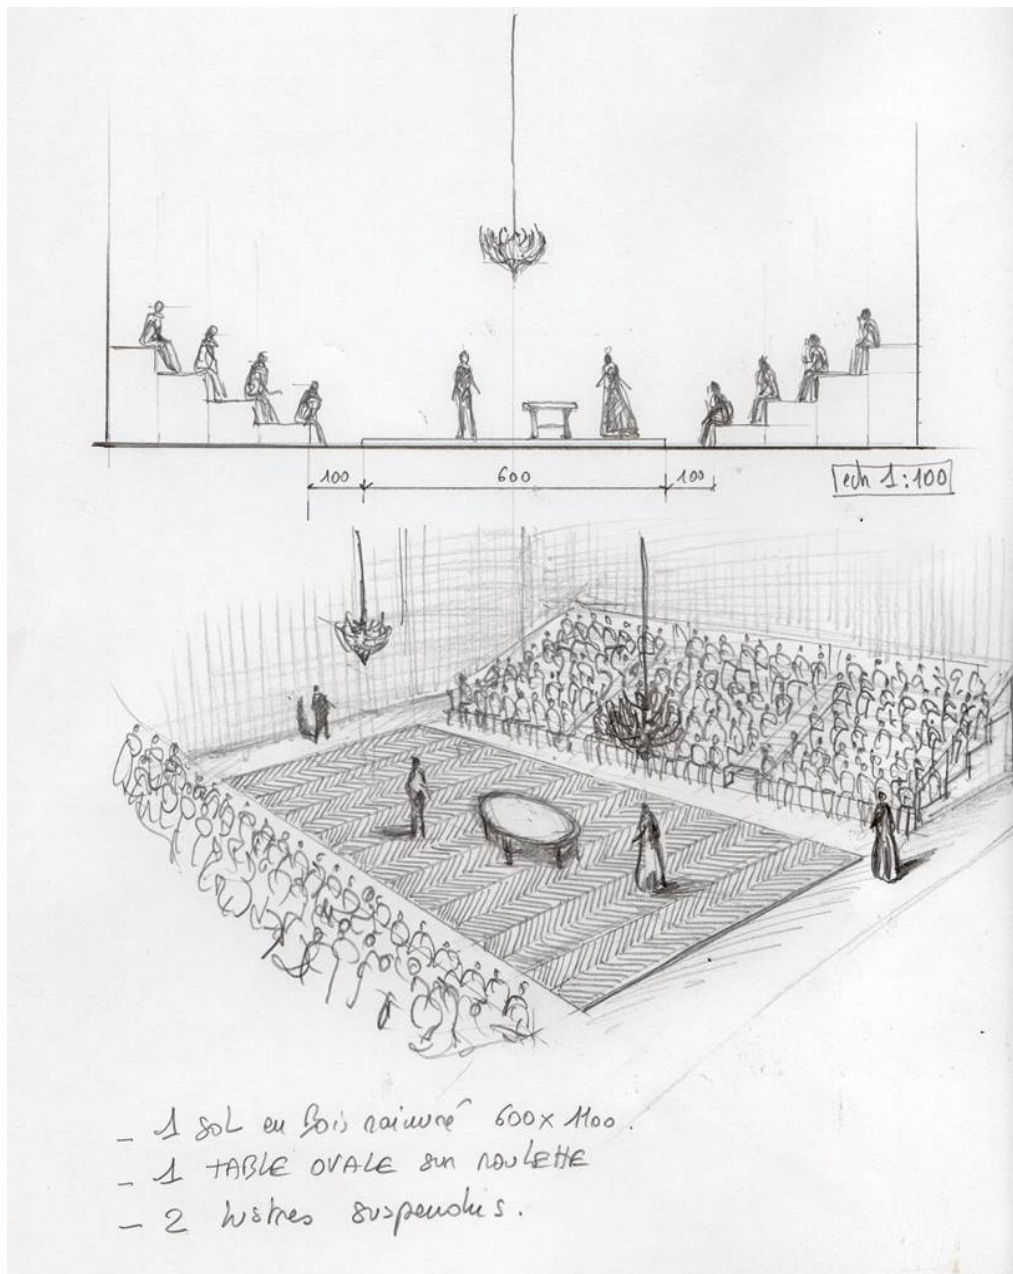 100 600 100
ech 1:100
- 1 SOL en Bois rainuré 600 x 1100.
- 1 TABLE OVALE sur ROULETTE
- 2 lustres suspendus.